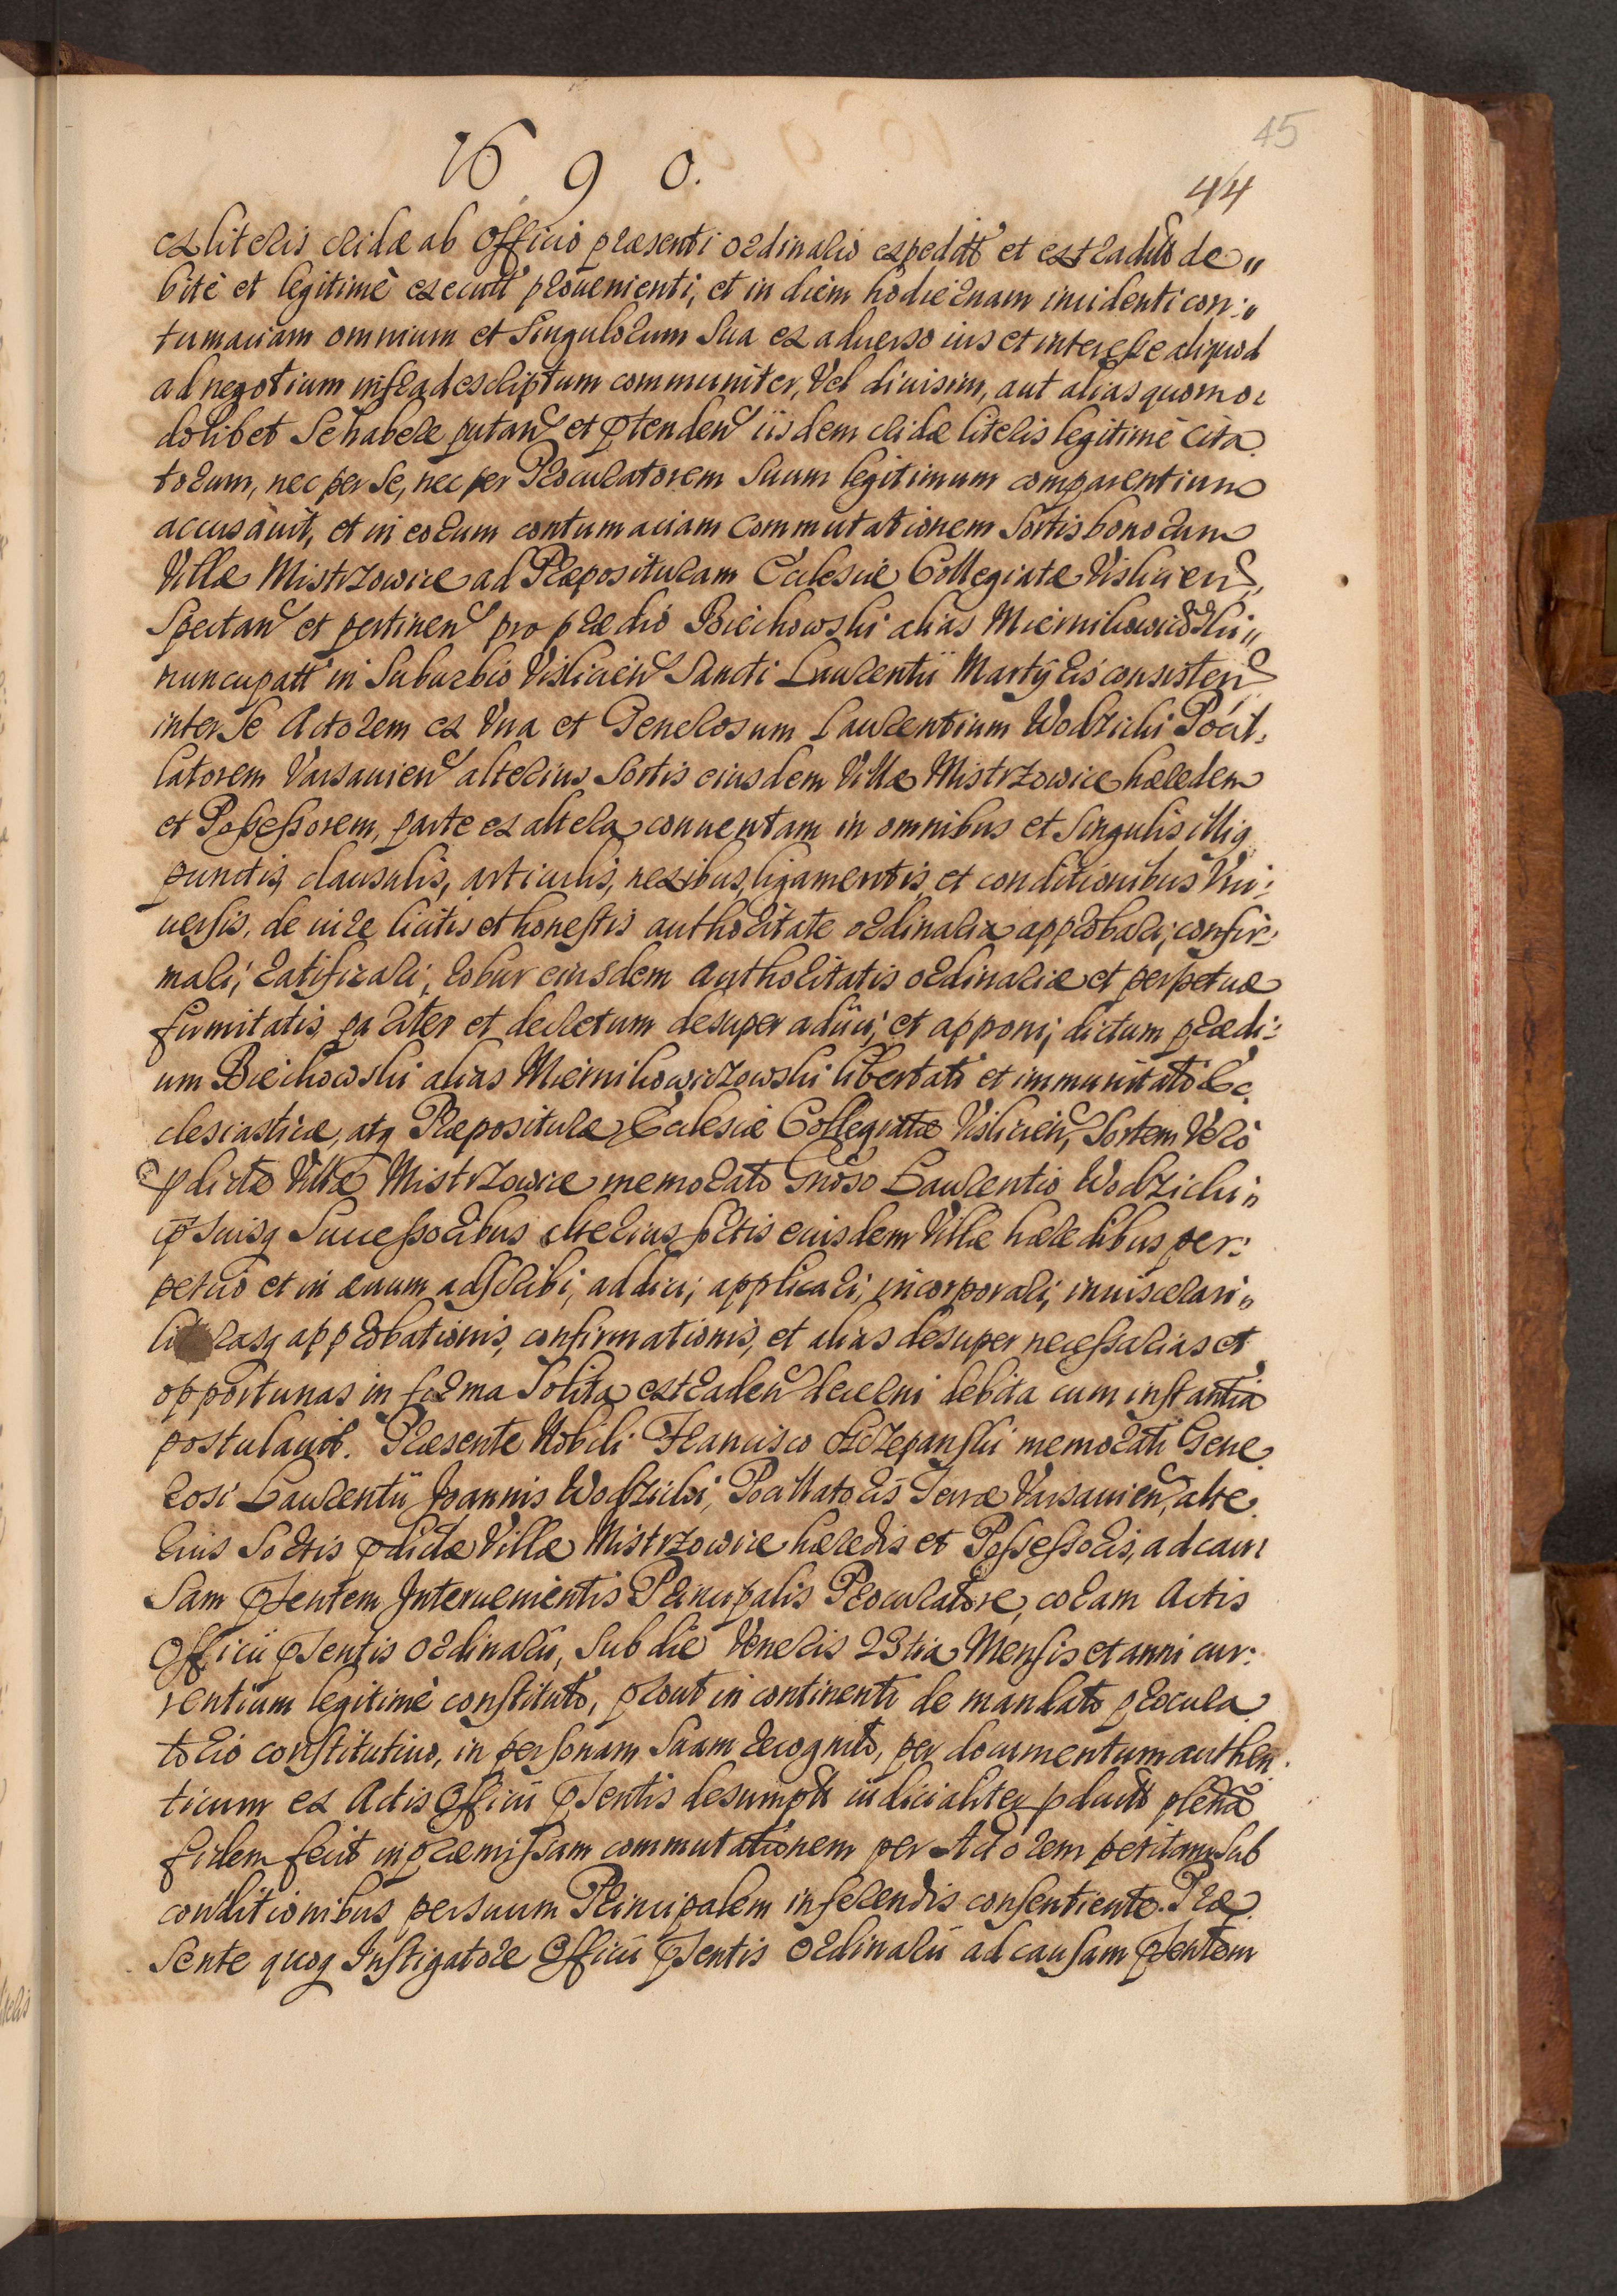 45
1690.
44
ex literis cridae ab Officio praesenti ordinario expeditt et extraditt de„
bitè et legitimè executt prouenienti, et in diem hodiernam incidenti con:„
tumaciam omnium et Singulorum Sua ex aduerso ius et interesse aliquod
ad negotium infradescriptum communiter, Vel diuisim, aut alias quomo:
dolibet Se habere putan et ptenden iisdem cridae literis legitimè cita
torum, nec per Se, nec per Procuratorem Suum legitimum comparentium
accusauit, et in eorum contumaciam commutationem Sortis bonorum
Villae Mistrzowice ad Praeposituram Ecclesiae Collegiatae Vislicien,
Spectan et pertinen pro praedio Biechowski alias Miernikowiczowski„
nuncupatt in Suburbio Vislicien Sancti Laurentii Martyris consisten
inter Se Actorem ex Vna et Generosum Laurentium Wodzicki Pocil:
latorem Varsauien alterius Sortis eiusdem Villae Mistrzowice haeredem
et Possessorem, parte ex altera conuentam in omnibus et Singulis illiq
punctis, clausulis, articulis, nexibus, ligamentis, et conditionibus Vni:
uersis, de iure licitis et honestis authoritate ordinaria approbari, confir:
mari, ratificari, robur eiusdem authoritatis ordinariae et perpetuae
firmitatis, pariter et decretum desuper adiici, et apponi, dictum praedi:
um Biechowski alias Miernikowiczowski libertati et immunitati Ec
clesiasticae, atq Praepositurae Ecclesiae Collegiatae Vislicien, Sortem Verò
pdictae Villae Mistrzowice memorato Gnoso Laurentio Wodzicki„
psuisq Successoribus alterius sortis eiusdem Villae haeredibus per:
petuo et in aeuum adscribi, addici, applicari, incorporari, inuiscerari„
literasq approbationis, confirmationis, et alias desuper necessarias et
opportunas in forma Solita extraden decerni debita cum instantia
postulauit. Praesente Nobili Francisco Szczepanski memorati Gene
rosi Laurentii Joannis Wodzicki, Pocillatoris Terrae Varsauien, alte
rius Sortis pdictae Villae Mistrzowice haeredis et Possessoris, ad cau:
Sam psentem Interuenientis Principalis Procuratore, coram Actis
Officii psentis ordinarii, Sub die Veneris 23tia Mensis et anni cur:
rentium legitimè constituto, prout in continenti de mandato procura
torio constitutiuo, in personam Suam recognito, per documentum authen
ticum ex Actis Officii psentis desumptt iudicialiter pductt plenã
fidem fecit in praemissam commutationem per Actorem petitam Sub
conditionibus per suum Principalem inserendis consentiente. Prae
Sente quoq Instigatore Officii psentis Ordinarii ad causam psentem